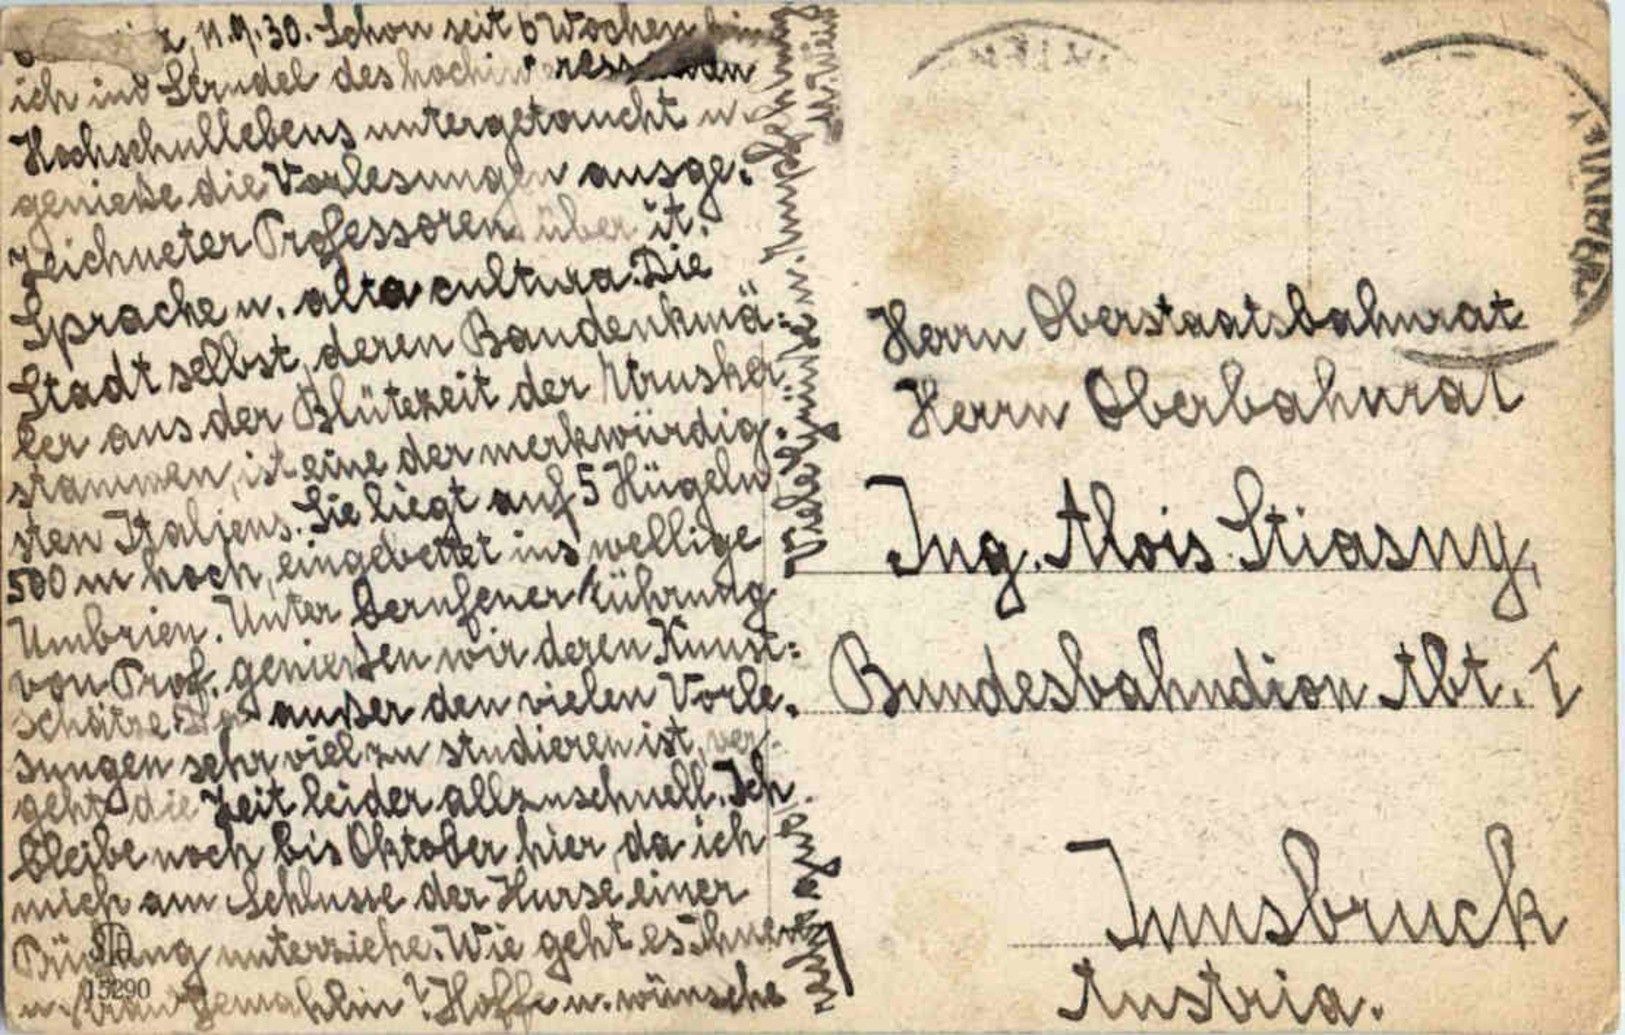 11.9.30. Schon seit 6 Wochen bin
ich ins Strudel des
Hochschullebens untergetaucht u.
genieße die Vorlesungen ausge-
zeichneter Professoren über it.
Sprache u. alta cultura. Die
Stadt selbst, deren Baudenkmä-
ler aus der Blütezeit der Etrusker
stammen, ist eine der merkwürdig-
sten Italiens. Sie liegt auf 5 Hügeln
500 m hoch, eingebettet ins wellige
Umbrien. Unter berufener Führung
von Prof. genießen wir deren Kunst-
schätze. Da außer den vielen Vorle-
sungen sehr viel zu studieren ist, ver-
geht die Zeit leider allzuschnell. Ich
bleibe noch bis Oktober hier, da ich
mich am Schlusse der Kurse einer
Prüfung unterziehe. Wie geht es Ihnen
u. Frau Gemahlin? Hoffe u. wünsche
Viele Grüße u.
15290
Herrn Oberstaatsbahnrat
Herrn Oberbahnrat
Ing. Alois Stiasny,
Bundesbahndion Abt. I
Innsbruck
Austria.